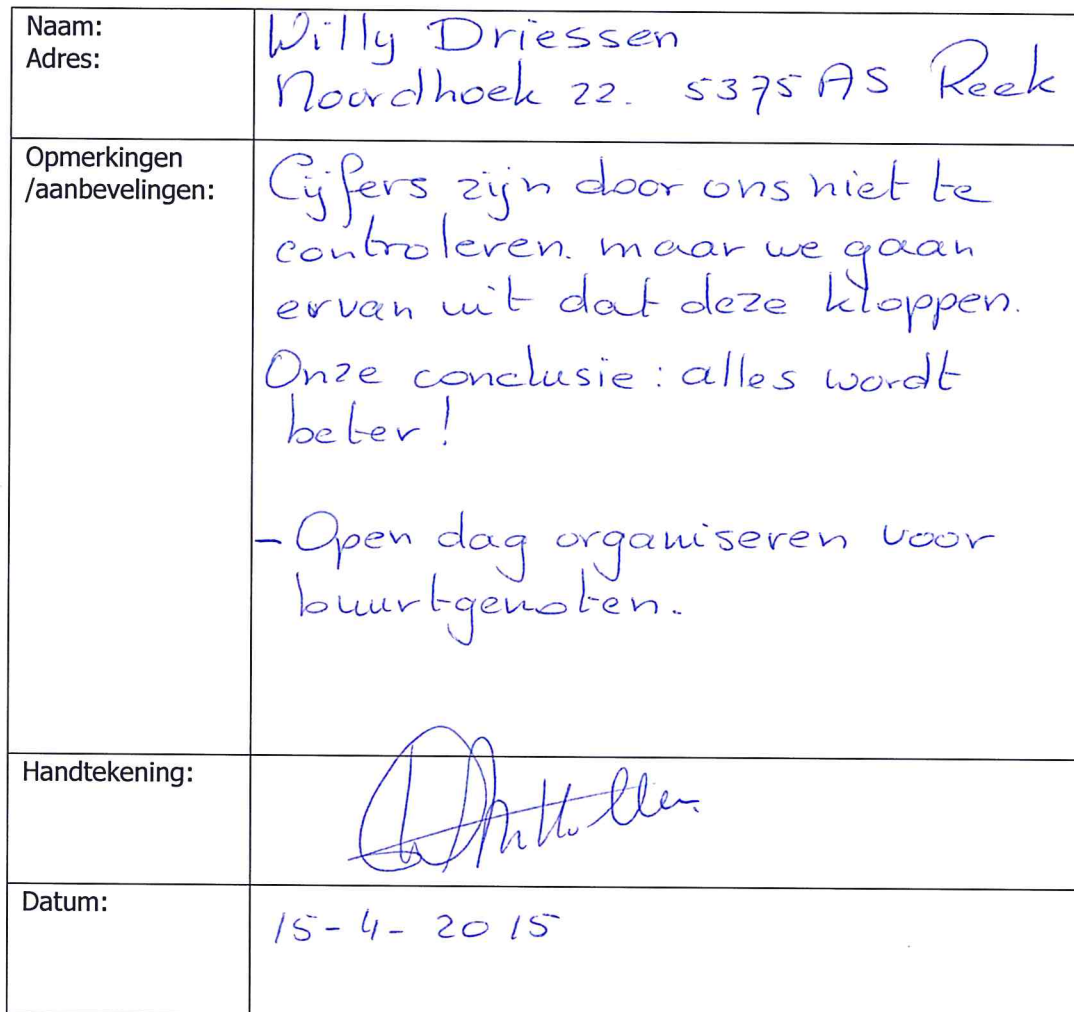 Naam: Willy Driessen
Adres: Noordhoek 22. 5375 AS Reek
Opmerkingen
/aanbevelingen:
Cijfers zijn door ons niet te
controleren. maar we gaan
ervan uit dat deze kloppen.
Onze conclusie: alles wordt
beter!
- Open dag organiseren voor
buurtgenoten.
Handtekening:
Datum: 15-4-2015